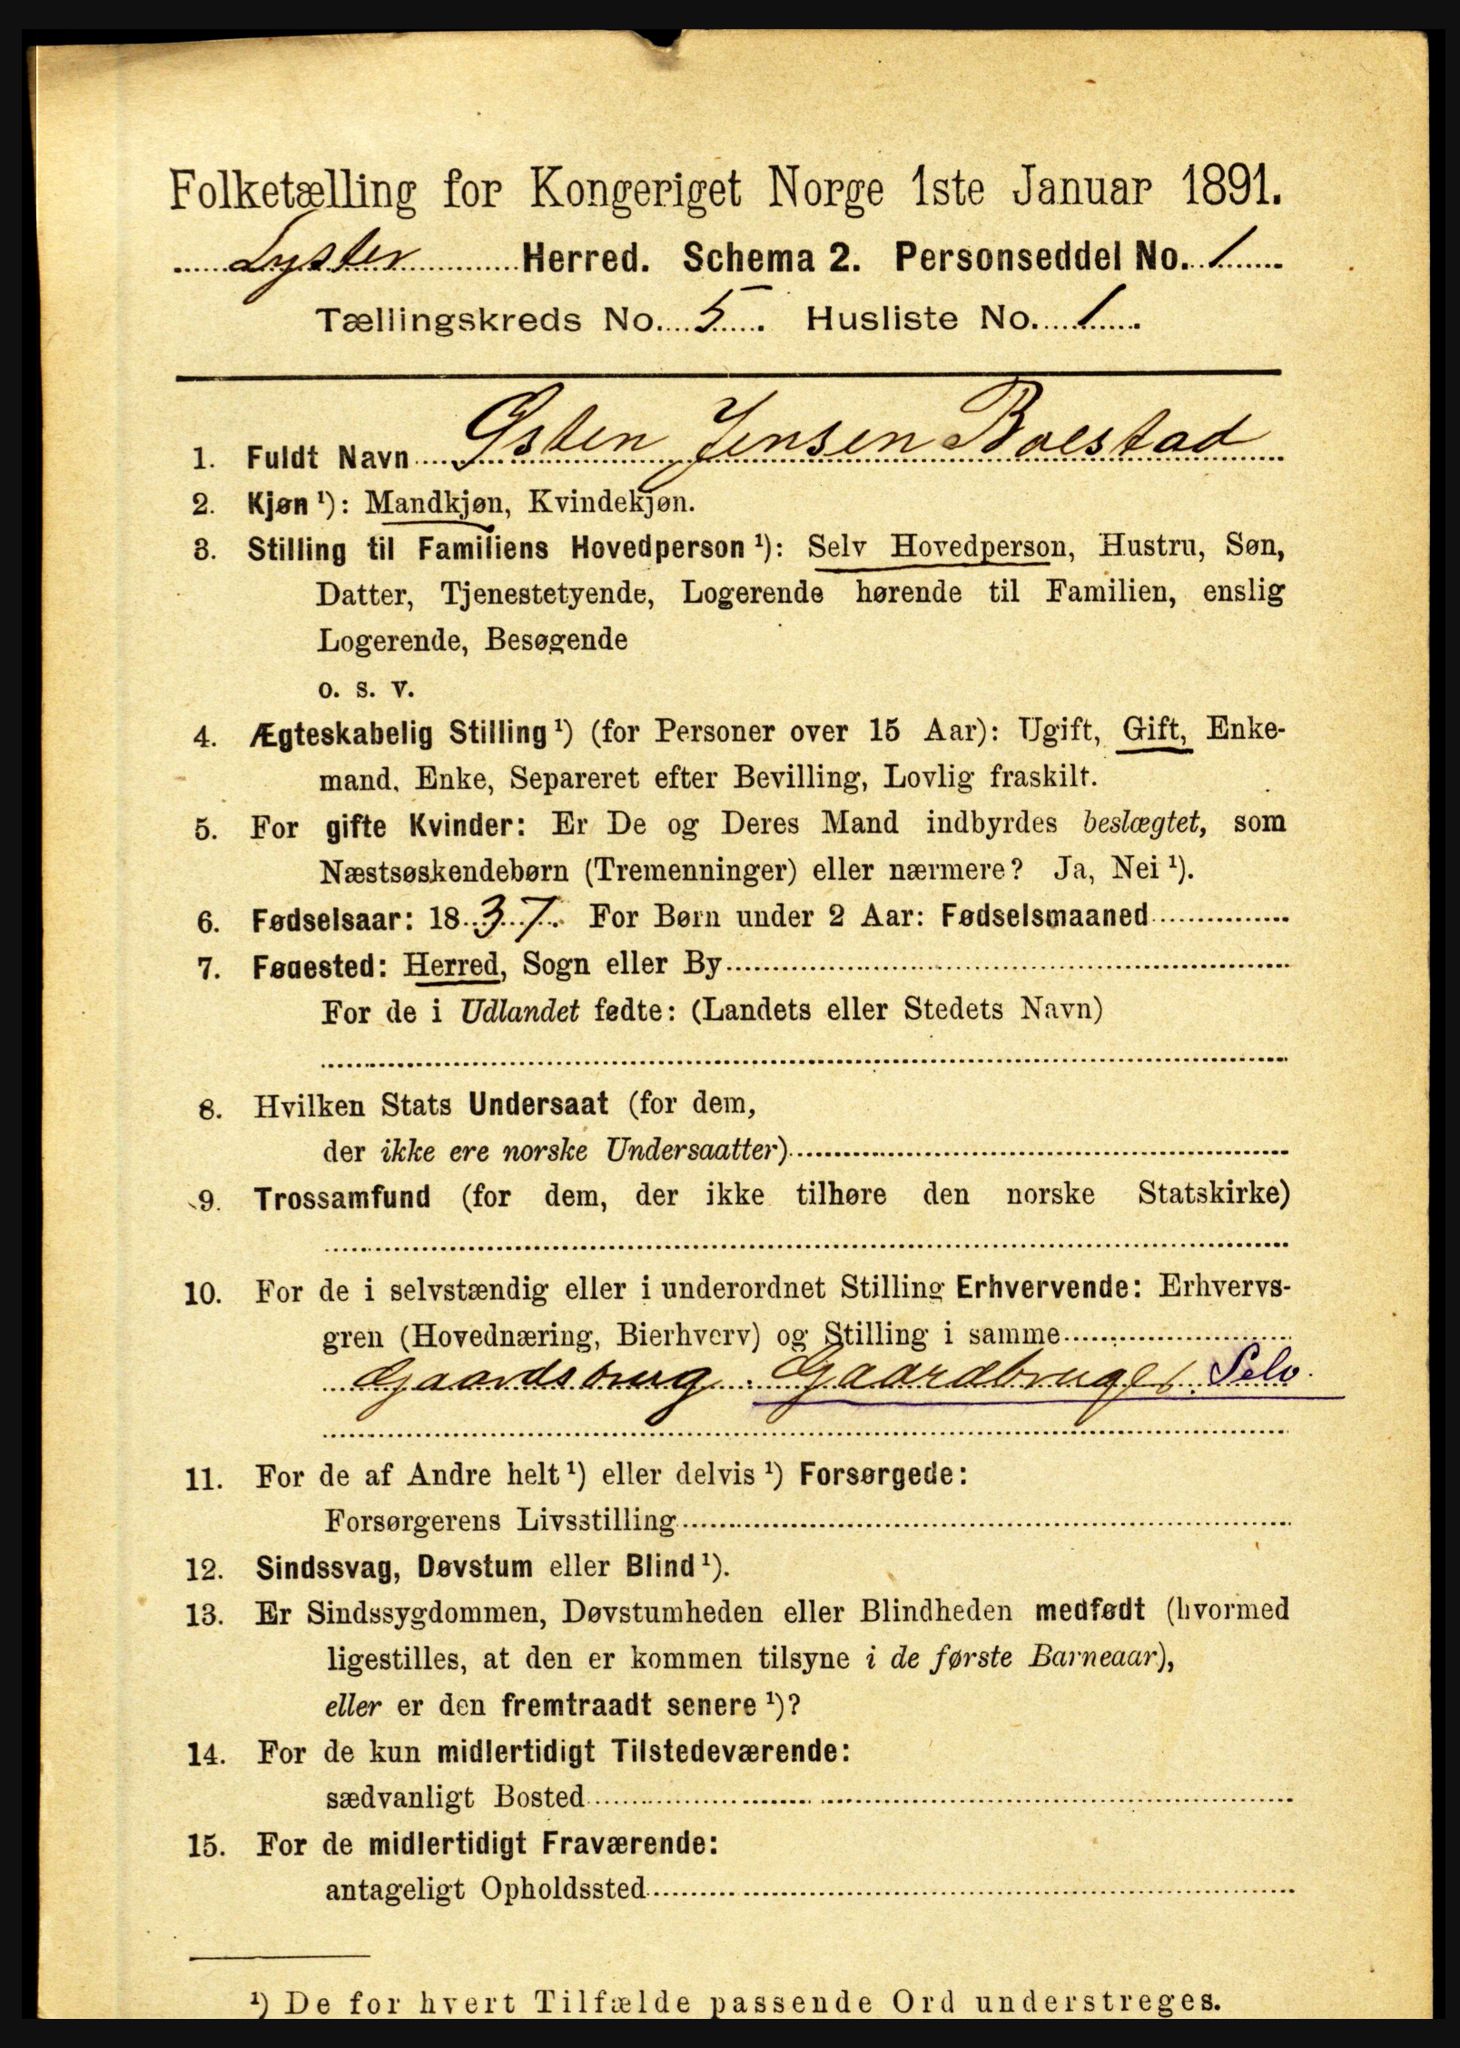 Folketælling for Kongeriget Norge 1ste Januar 1891.
Lyster Herred. Schema 2. Personseddel No. 1
Tællingskreds No. 5. Husliste No. 1.
1. Fuldt Navn Østen Jensen Bolstad
2. Kjøn ¹): Mandkjøn, Kvindekjøn.
3. Stilling til Familiens Hovedperson ¹): Selv Hovedperson, Hustru, Søn,
Datter, Tjenestetyende, Logerende hørende til Familien, enslig
Logerende, Besøgende
o. s. v.
4. Ægteskabelig Stilling ¹) (for Personer over 15 Aar): Ugift, Gift, Enke-
mand, Enke, Separeret efter Bevilling, Lovlig fraskilt.
5. For gifte Kvinder: Er De og Deres Mand indbyrdes beslægtet, som
Næstsøskendebørn (Tremenninger) eller nærmere? Ja, Nei ¹).
6. Fødselsaar: 1837. For Børn under 2 Aar: Fødselsmaaned
7. Fødested: Herred, Sogn eller By
For de i Udlandet fødte: (Landets eller Stedets Navn)
8. Hvilken Stats Undersaat (for dem,
der ikke ere norske Undersaatter)
9. Trossamfund (for dem, der ikke tilhøre den norske Statskirke)
10. For de i selvstændig eller i underordnet Stilling Erhvervende: Erhvervs-
gren (Hovednæring, Bierhverv) og Stilling i samme
Gaardsbrug. Gaardbruger. Selv.
11. For de af Andre helt ¹) eller delvis ¹) Forsørgede:
Forsørgerens Livsstilling
12. Sindssvag, Døvstum eller Blind ¹).
13. Er Sindssygdommen, Døvstumheden eller Blindheden medfødt (hvormed
ligestilles, at den er kommen tilsyne i de første Barneaar),
eller er den fremtraadt senere ¹)?
14. For de kun midlertidigt Tilstedeværende:
sædvanligt Bosted
15. For de midlertidigt Fraværende:
antageligt Opholdssted
¹) De for hvert Tilfælde passende Ord understreges.